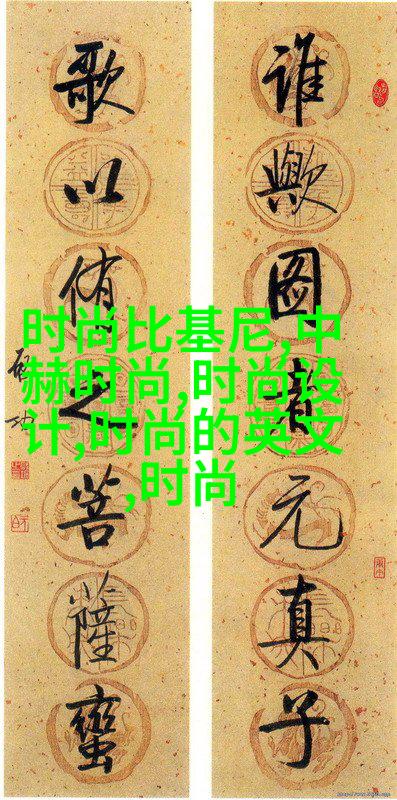 谁歟图者元真子
歌以侑之菩薩蠻
启功
时尚比基尼,中
赫时尚,时尚设
计,时尚的英文
,时尚